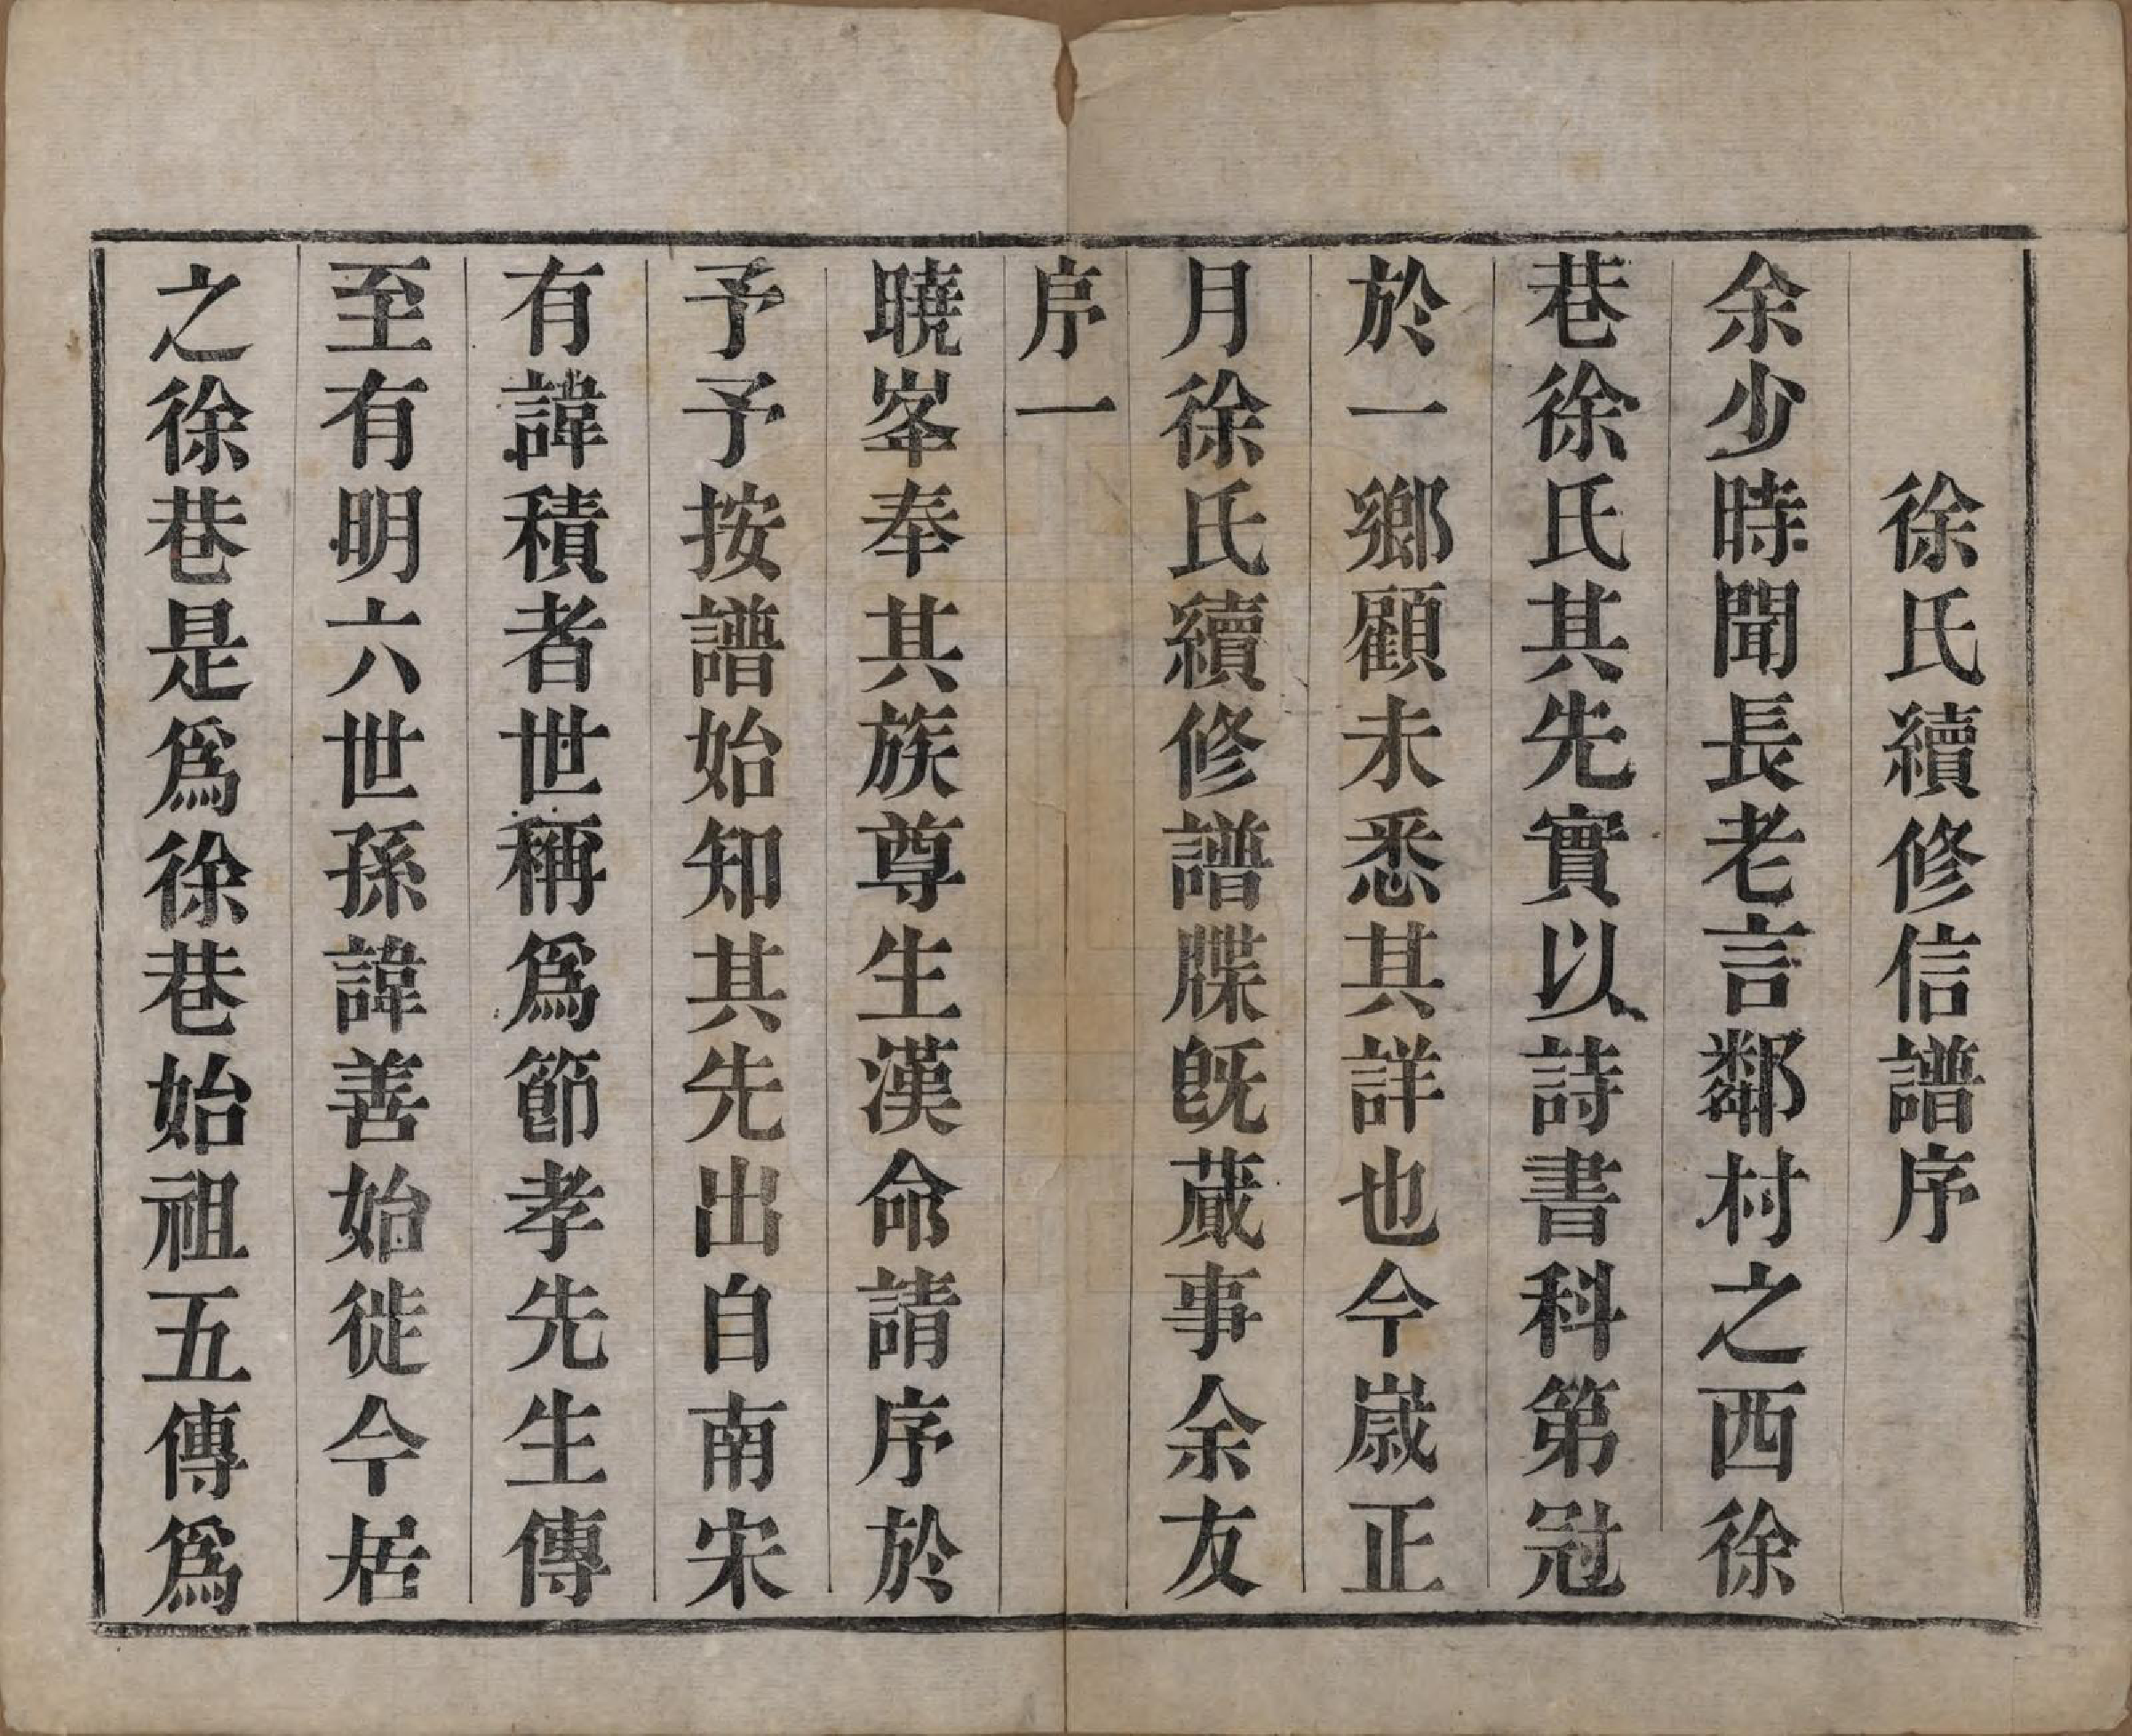 徐氏續修信譜序
余少時聞長老言鄰村之西徐
巷徐氏其先實以詩書科第冠
於一鄉顧未悉其詳也今嵗正
月徐氏續修譜牒旣蕆事余友
序一
曉峯奉其族尊生漢命請序於
予予按譜始知其先出自南宋
有諱積者世稱爲節孝先生傳
至有明六世孫諱善始徙今居
之徐巷是爲徐巷始祖五傳爲